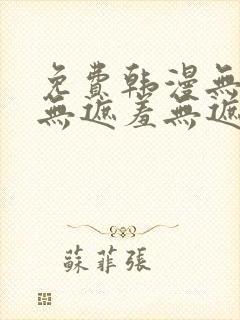 免費韩漫無
無遮羞無遮
蘇菲張